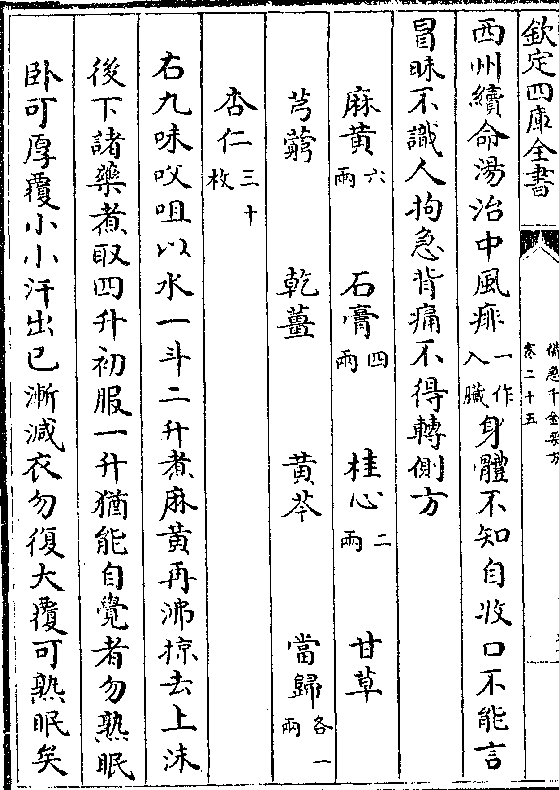 欽定四庫全書
備急千金要方
卷二十五
西州續命湯治中風痱一作入臟身體不知自收口不能言
冒昧不識人拘急背痛不得轉側方
麻黃六兩 石膏四兩 桂心二兩 甘草
芎藭 乾薑 黃芩 當歸各一兩
杏仁三十枚
右九味㕮咀以水一斗二升煮麻黃再沸掠去上沫
後下諸藥煮取四升初服一升猶能自覺者勿熟眠
卧可厚覆小小汗出已漸減衣勿復大覆可熟眠矣